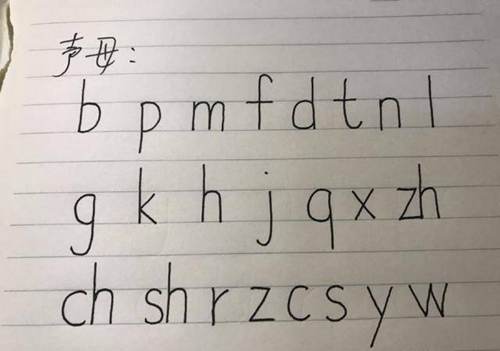 声母:
b p m f d t n l
g k h j q x zh
ch sh r z c s y w